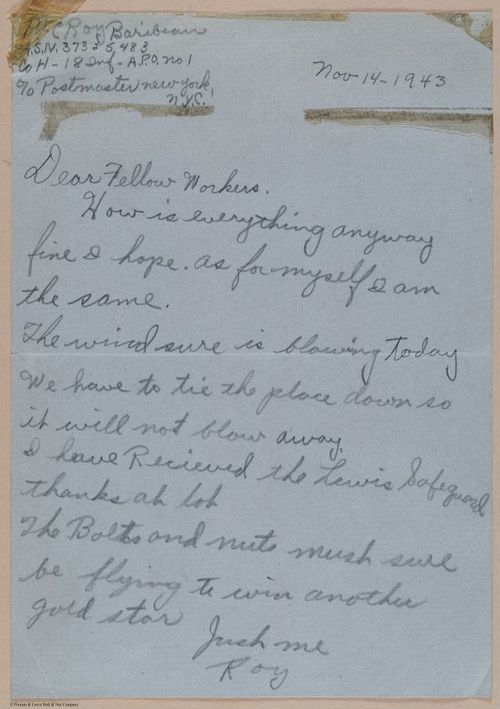 Pfc Roy Baribeau
A.S.N. 37335483
Co H - 18 Inf - A.P.O. no 1
c/o Postmaster new york,
N.Y.C.
Nov 14 - 1943
Dear Fellow Workers.
How is everything anyway
fine I hope. as for myself I am
the same.
The wind sure is blowing today
We have to tie the place down so
it will not blow away.
I have Recieved the Lewis Safeguard
thanks ah loh
The Bolts and nuts mush sure
be flying to win another
gold star
Jush me
Roy